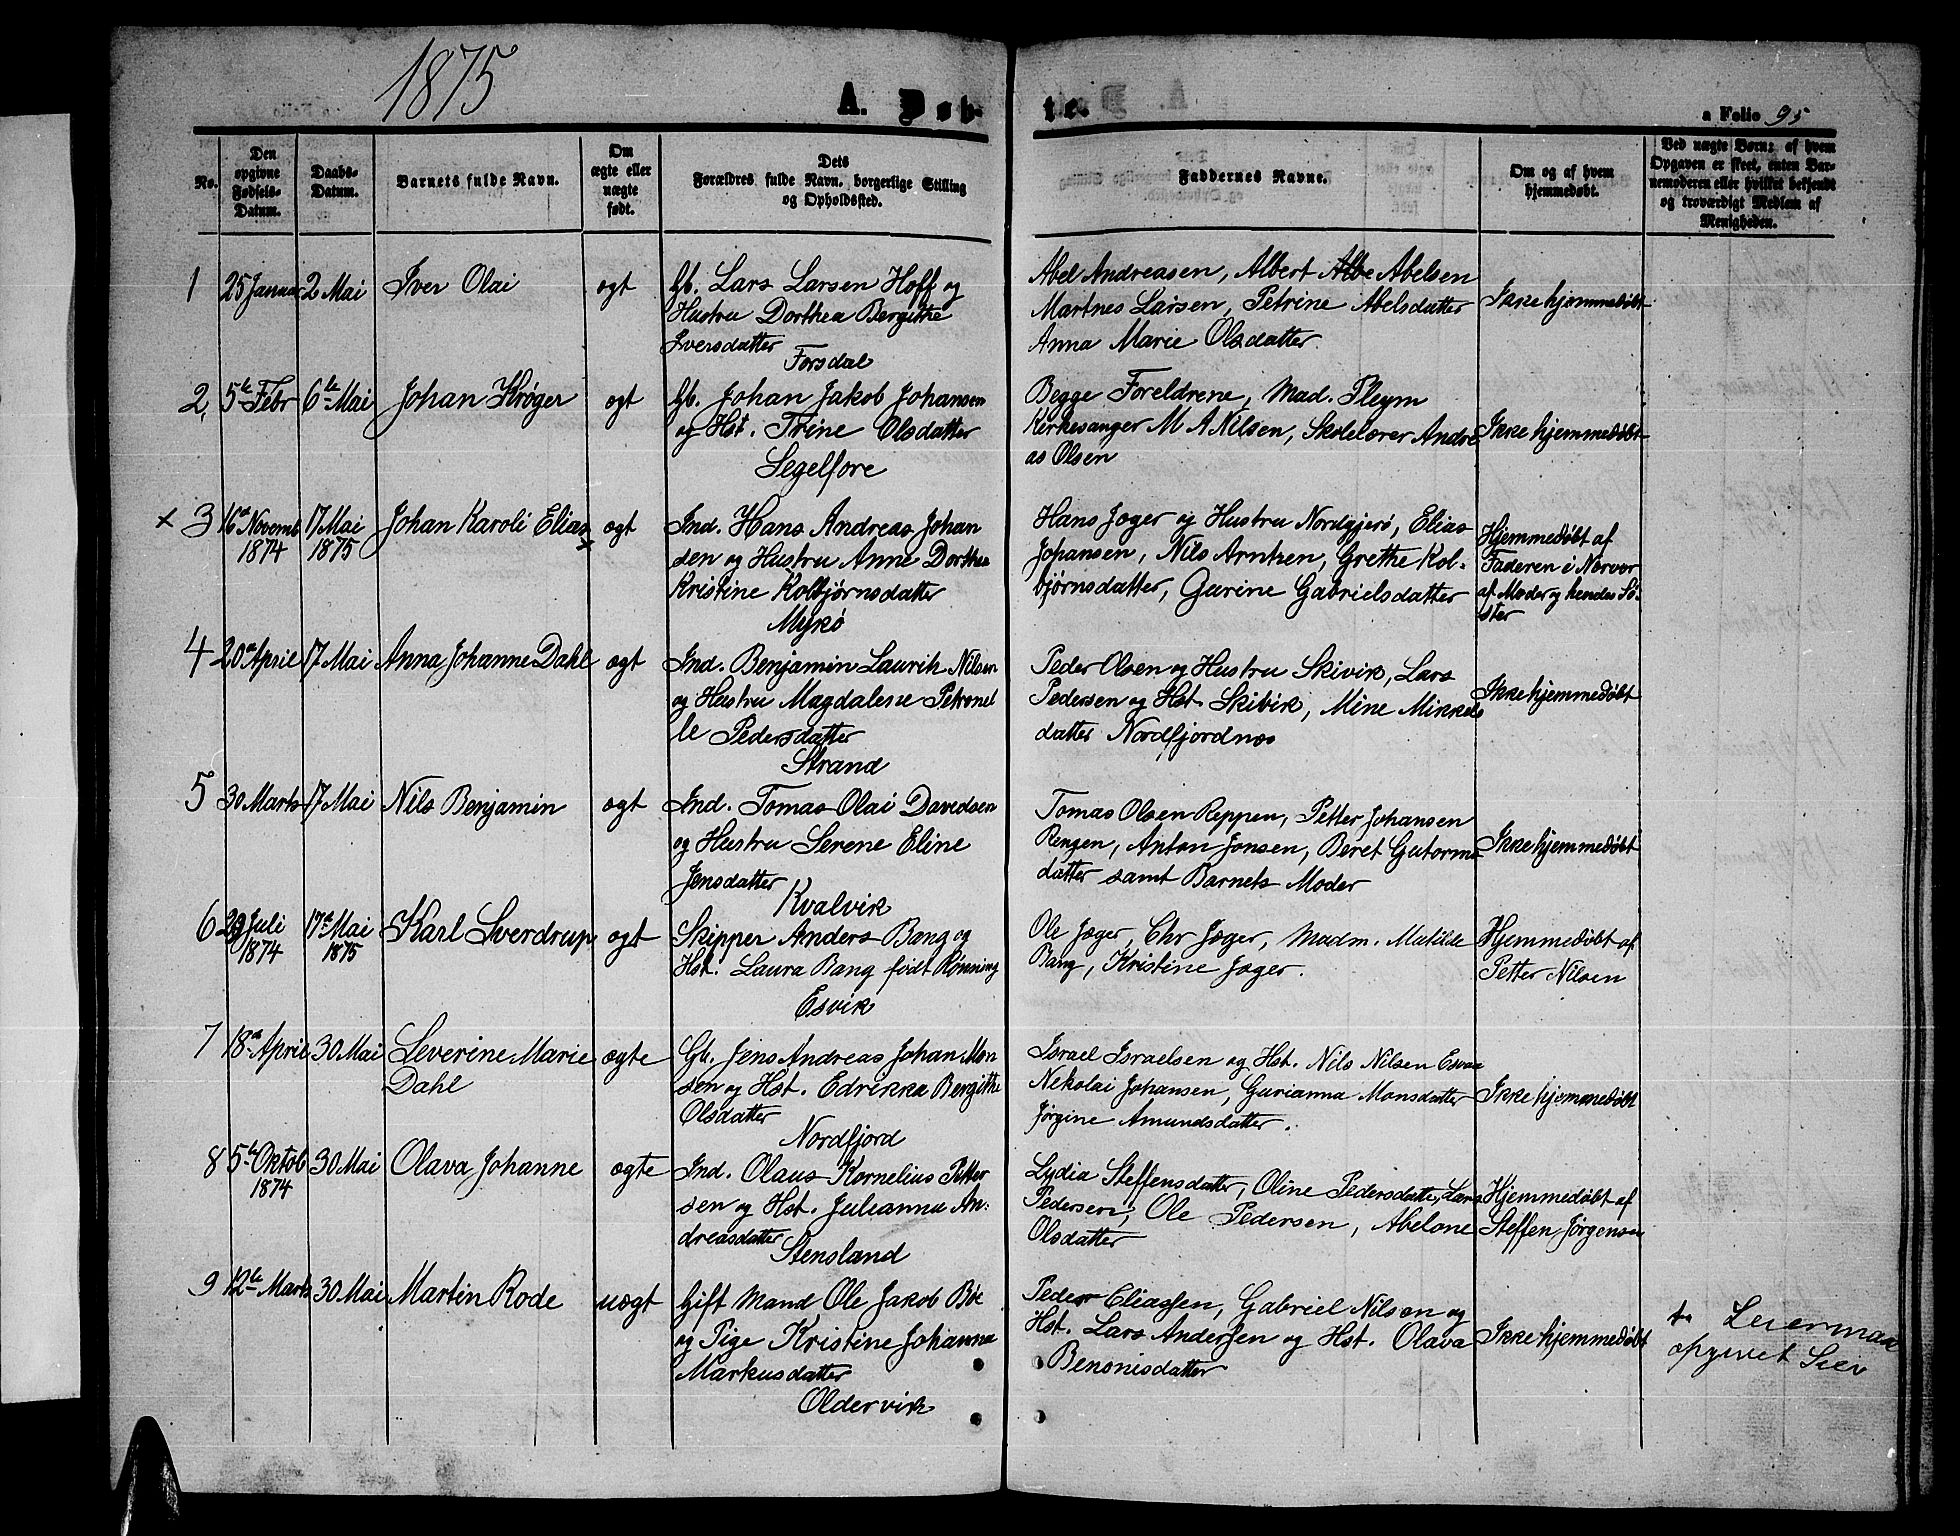 1875
A. Døb-
te.
a Folio 95
No.
Den opgivne Fødsels-Datum.
Daabs-Datum.
Barnets fulde Navn.
Om ægte eller uægte født.
Dets Forældres fulde Navn, borgerlige Stilling og Opholdssted.
Faddernes Navne.
Om og af hvem hjemmedøbt.
Ved uægte Børn: af hvem Opgaven er skeet, enten Barnemoderen eller hvilket bekjendt og troværdigt Medlem af Menigheden.
1 25 Januar 2 Mai Iver Olai ægt Gb. Lars Larsen Hoff og
Hustru Dorthea Bergithe
Iversdatter
Forsdal
Abel Andreasen, Albert Abelsen
Martnes Larsen, Petrine Abelsdatter
Anna Marie Olsdatter.
Ikke hjemmedøbt
2, 5te Febr 6te Mai Johan Krøger ægt Gb. Johan Jakob Johansen
og Hst. Trine Olsdatter
Segelfore
Begge Foreldrene, Mad. Pleym
Kirkesanger M A Nilsen, Skolelærer Andre
as Olsen
Ikke hjemmedøbt
x 3 16de Novemb 17 Mai Johan Karoli Elias ægt Ind. Hans Andreas Johan
1874 1875 x
sen og Hustru Anne Dorthea
Kristine Kolbjørnsdatter
Myrkø
Hans Jæger og Hustru Nordgjerø, Elias
Johansen, Nils Arntzen, Grethe Kol-
bjørnsdatter, Gurine Gabrielsdatter
Hjemmedøbt af
Faderen i Nærvær
af Moder og hendes Sø-
ster
4 20de April 17 Mai Anna Johanne Dahl ægt Ind. Benjamin Laurith Nilsen
og Hustru Magdalene Petronel
le Pedersdatter
Strand
Peder Olsen og Hustru Skivik, Lars
Pedersen og Hst. Skibik, Mine Mikkels
datter Nordfjordnæs
Ikke hjemmedøbt
5 30 Marts 17 Mai Nils Benjamin ægt Ind. Tomas Olai Davedsen
og Hustru Serene Eline
Jensdatter
Kvalvik
Tomas Olsen Reppen, Petter Johansen
Rengen, Anton Jonsen, Beret Gutorms
datter samt Barnets Moder
Ikke hjemmedøbt
6 29 Juli 17de Mai Karl Sverdrup ægt Skipper Anders Bang og
1874 1875
Hst. Laura Bang født Rønning
Esvik
Ole Jæger, Chr Jæger, Madm. Matilde
Bang, Kristine Jæger.
Hjemmedøbt af
Petter Nilsen
7 18de April 30 Mai Severine Marie ægte Gb. Jens Andreas Johan Mon
Dahl
sen og Hst. Edrikka Bergitte
Olsdatter
Nordfjord
Israel Israelsen og Hst. Nils Nilsen
Nekolai Johansen, Gurianna Monsdatter
Jørgine Amundsdatter.
Ikke hjemmedøbt
8 5te Oktob 30 Mai Olava Johanne ægte Ind. Olaus Kornelius Petter
1874
sen og Hst. Julianna An-
dreasdatter
Stensland
Lydia Steffensdatter, Oline Pedersdatter, Lars
Pedersen, Ole Pedersen, Abelone
Olsdatter
Hjemmedøbt af
Steffen Jørgensen
9 12te Marts 30 Mai Martin Rode uægt Gift Mand Ole Jakob Bøe
og Pige Kristine Johanna
Markusdatter
Oldervik
Peder Eliassen, Gabriel Nilsen og
Hst. Lars Anderssen og Hst. Olava
Benonisdatter
Ikke hjemmedøbt
Leiermaal
opgivet